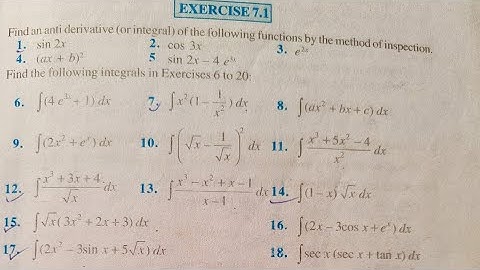 EXERCISE 7.1
Find an anti derivative (or integral) of the following functions by the method of inspection.
1. sin 2x 2. cos 3x 3. e^{2x}
4. (ax + b)² 5 sin 2x – 4 e^{3x}
Find the following integrals in Exercises 6 to 20:
6. ∫(4 e^{3x} + 1) dx 7. ∫x²(1 – 1/x²) dx 8. ∫(ax² + bx + c) dx
9. ∫(2x² + e^x) dx 10. ∫(√x – 1/√x)² dx 11. ∫(x³ + 5x² – 4)/x² dx
12. ∫(x³ + 3x + 4)/√x dx 13. ∫(x³ – x² + x – 1)/(x – 1) dx 14. ∫(1 – x) √x dx
15. ∫√x(3x² + 2x + 3) dx 16. ∫(2x – 3cos x + e^x) dx
17. ∫(2x² – 3sin x + 5√x) dx 18. ∫sec x (sec x + tan x) dx